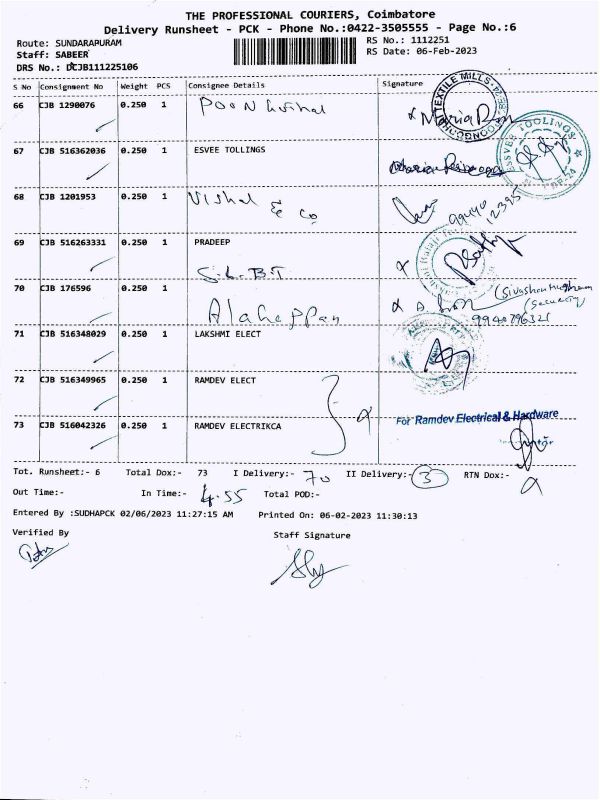 THE PROFESSIONAL COURIERS, Coimbatore
Delivery Runsheet - PCK - Phone No.:0422-3505555 - Page No.:6
Route: SUNDARAPURAM
RS No.: 1112251
Staff: SABEER
RS Date: 06-Feb-2023
DRS No.: DCJB111225106
S No Consignment No Weight PCS Consignee Details Signature
66 CJB 1290076 0.250 1
TEXTILE MILLS
67 CJB 516362036 0.250 1 ESVEE TOLLINGS
ESSVEE TOOLINGS
68 CJB 1201953 0.250 1 Vishal & Co
99440 12395
69 CJB 516263331 0.250 1 PRADEEP
S.L.B.T
70 CJB 176596 0.250 1 Alaheppan
(Security)
9940796321
71 CJB 516348029 0.250 1 LAKSHMI ELECT
72 CJB 516349965 0.250 1 RAMDEV ELECT
73 CJB 516042326 0.250 1 RAMDEV ELECTRIKCA
For Ramdev Electrical & Hardware
Tot. Runsheet:- 6 Total Dox:- 73 I Delivery:- 70 II Delivery:- 3 RTN Dox:-
Out Time:- In Time:- 4.55 Total POD:-
Entered By :SUDHAPCK 02/06/2023 11:27:15 AM Printed On: 06-02-2023 11:30:13
Verified By Staff Signature